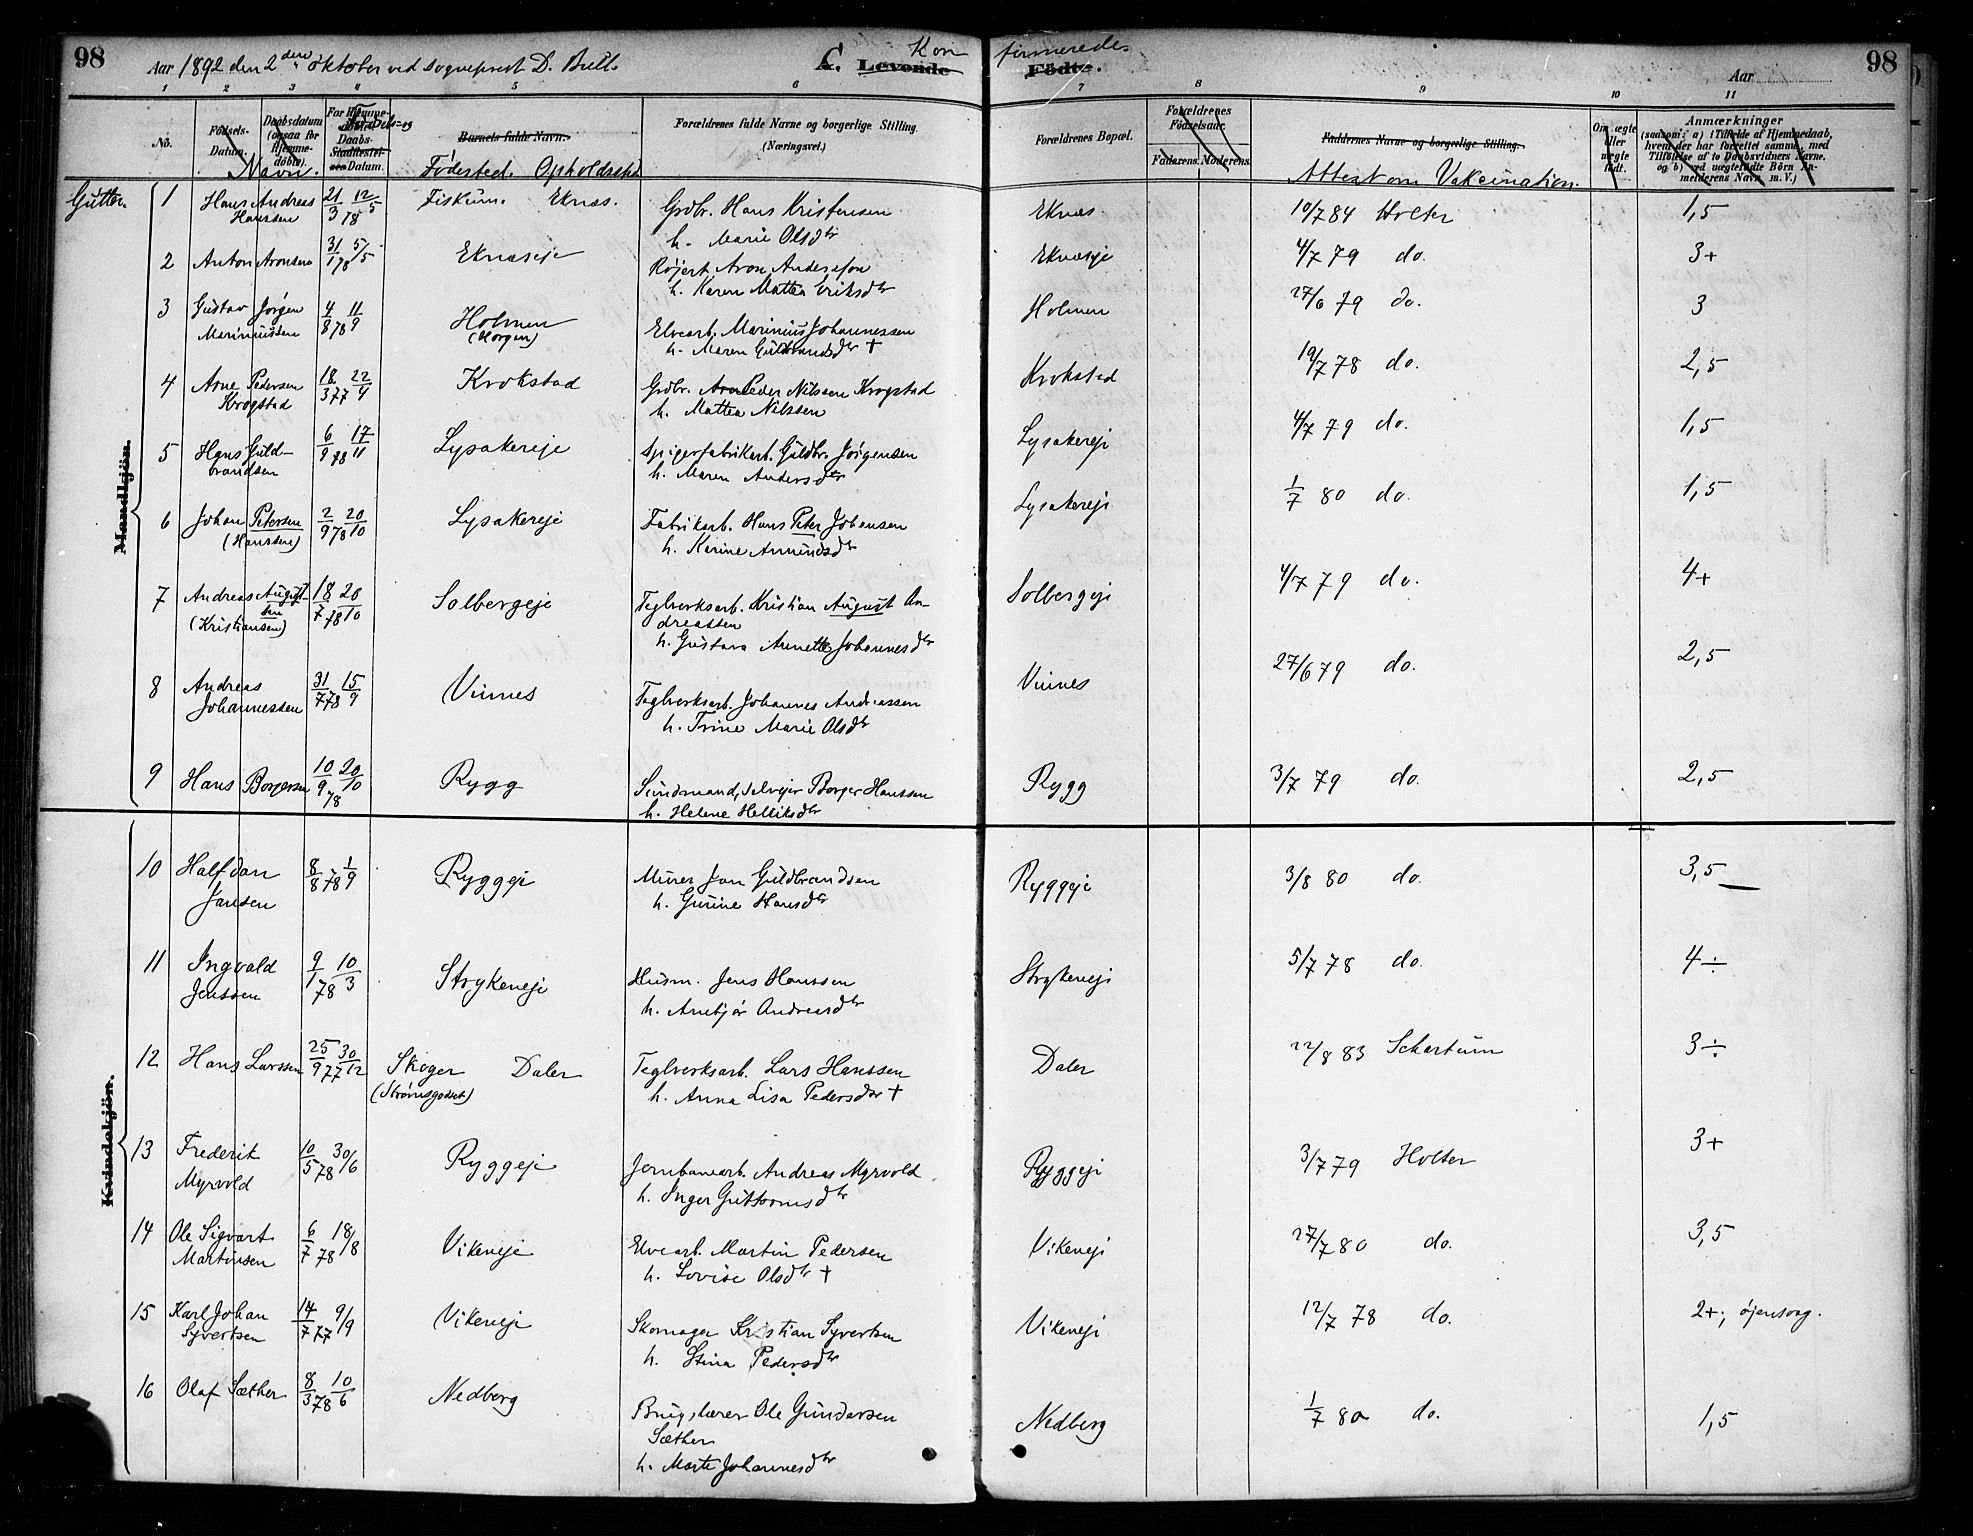 98
Aar 1892 den 2den oktober ved sogneprest D. Bull.
C. Levende Kon
firmerede.
Födte.
Aar
98
1 2 3 4 5 6 7 8 9 10 11
No.
Födsels-Datum.
Daabsdatum (ogsaa for Hjemme-döbte).
For Hjemme-döbte: Daabs-Stadfæstel-ses-Datum.
Barnets fulde Navn.
Forældrenes fulde Navne og borgerlige Stilling.
(Næringsvei.)
Forældrenes Bopæl.
Forældrenes Födselsaar.
Faderens. Moderens.
Faddernes Navne og borgerlige Stilling.
Om ægte eller uægte födt.
Anmærkninger
(saasom: a) i Tilfælde af Hjemmedaab, hvem der har forrettet samme, med Tilföielse af to Daabsvidners Navne, og b) ved uægtefödte Börn An-melderens Navn m. V.)
Navn.
Födested. Opholdssted
Attest om Vakcination.
Gutter.
Mandkjön.
1 Hans Andreas Hanssen 21/3 78 12/5 Fiskum. Eknæs. Grdbr. Hans Kristensen
h. Marie Olsdtr
Eknæs 10/7 84 Holter 1,5
2 Anton Aronsen 31/1 78 5/5 Eknæseje Røjert Aron Anderssøn
h. Karen Mattea Eriksdtr
Eknæseje 4/7 79 do. 3+
3 Gustav Jørgen Marinussen 4/8 78 11/9 Holmen (Horgen) Elvearb. Marinius Johannessen
h. Maren Guldbrandsdtr +
Holmen 27/6 79 do. 3
4 Arne Pedersen Krogstad 18/3 77 22/4 Krokstad Grdbr. Peder Nilssen Krogstad
h. Mattea Nilssen
Krokstad 19/7 78 do. 2,5
5 Hans Guld-brandsen 6/9 78 17/11 Lysakereje Spigerfabrikarb. Guldbr. Jørgensen
h. Maren Andersdtr
Lysakereje 4/7 79 do. 1,5
6 Johan Petersen (Hanssen) 2/9 78 20/10 Lysakereje Fabrikarb. Hans Peter Johansen
h. Karine Amundsdtr
Lysakereje 1/7 80 do. 1,5
7 Andreas August-sen (Kristiansen) 18/7 78 20/10 Solbergeje Teglverksarb. Kristian August An-
dreassen
h. Gustava Annette Johannesdtr
Solbergeje 4/7 79 do. 4+
8 Andreas Johannessen 31/7 78 15/9 Vinnes Teglverksarb. Johannes Andreassen
h. Trine Marie Olsdtr
Vinnes 27/6 79 do. 2,5
9 Hans Borgersen 10/9 78 20/10 Rygg Sundmand, Selvejer Borger Hanssen
h. Helene Helliksdtr
Rygg 3/7 79 do. 2,5
Kvindekjön.
10 Halfdan Jansen 8/8 78 1/9 Ryggeje Murer Jan Guldbrandsen
h. Gurine Hansdtr
Ryggeje 3/8 80 do. 3,5
11 Ingvald Jenssen 9/1 78 10/3 Strykeneje Husm. Jens Hanssen
h. Anebjør Andreasdtr
Strykeneje 5/7 78 do. 4÷
12 Hans Larssen 25/9 77 30/12 Skoger (Strømsgodset) Daler Teglverksarb. Lars Hanssen
h. Anna Lisa Pedersdtr +
Daler 22/8 83 Schartum 3÷
13 Frederik Myrvold 10/5 78 30/6 Ryggeje Jernbanearb. Andreas Myrvold
h. Inger Guttormsdtr
Ryggeje 3/7 79 Holter 3+
14 Ole Sigvart Martinsen 6/7 78 18/8 Vikeneje Elvearb. Martin Pedersen
h. Lovise Olsdtr +
Vikeneje 27/7 80 do. 3,5
15 Karl Johan Syvertsen 14/7 77 9/9 Vikeneje Skomager Kristian Syvertsen
h. Stina Pedersdtr
Vikeneje 12/7 78 do. 2+; øjensvag.
16 Olaf Sæther 8/3 78 10/6 Nedberg Brugslærer Ole Gundersen
Sæther
h. Marte Johannesdtr
Nedberg 1/7 80 do. 1,5